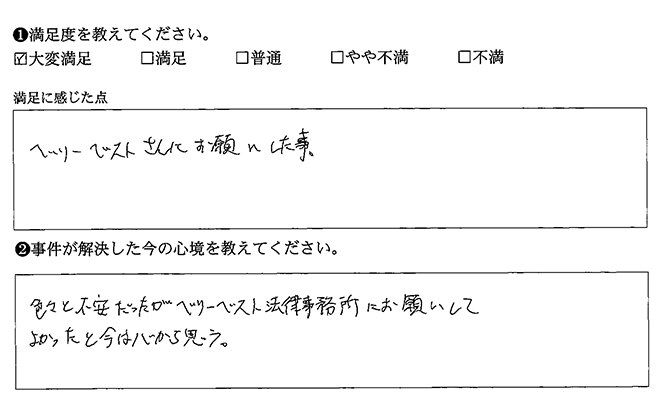 ❶満足度を教えてください。
☑大変満足 □満足 □普通 □やや不満 □不満
満足に感じた点
ベリーベストさんにお願いした事。
❷事件が解決した今の心境を教えてください。
色々と不安だったがベリーベスト法律事務所にお願いして
よかったと今は心から思う。